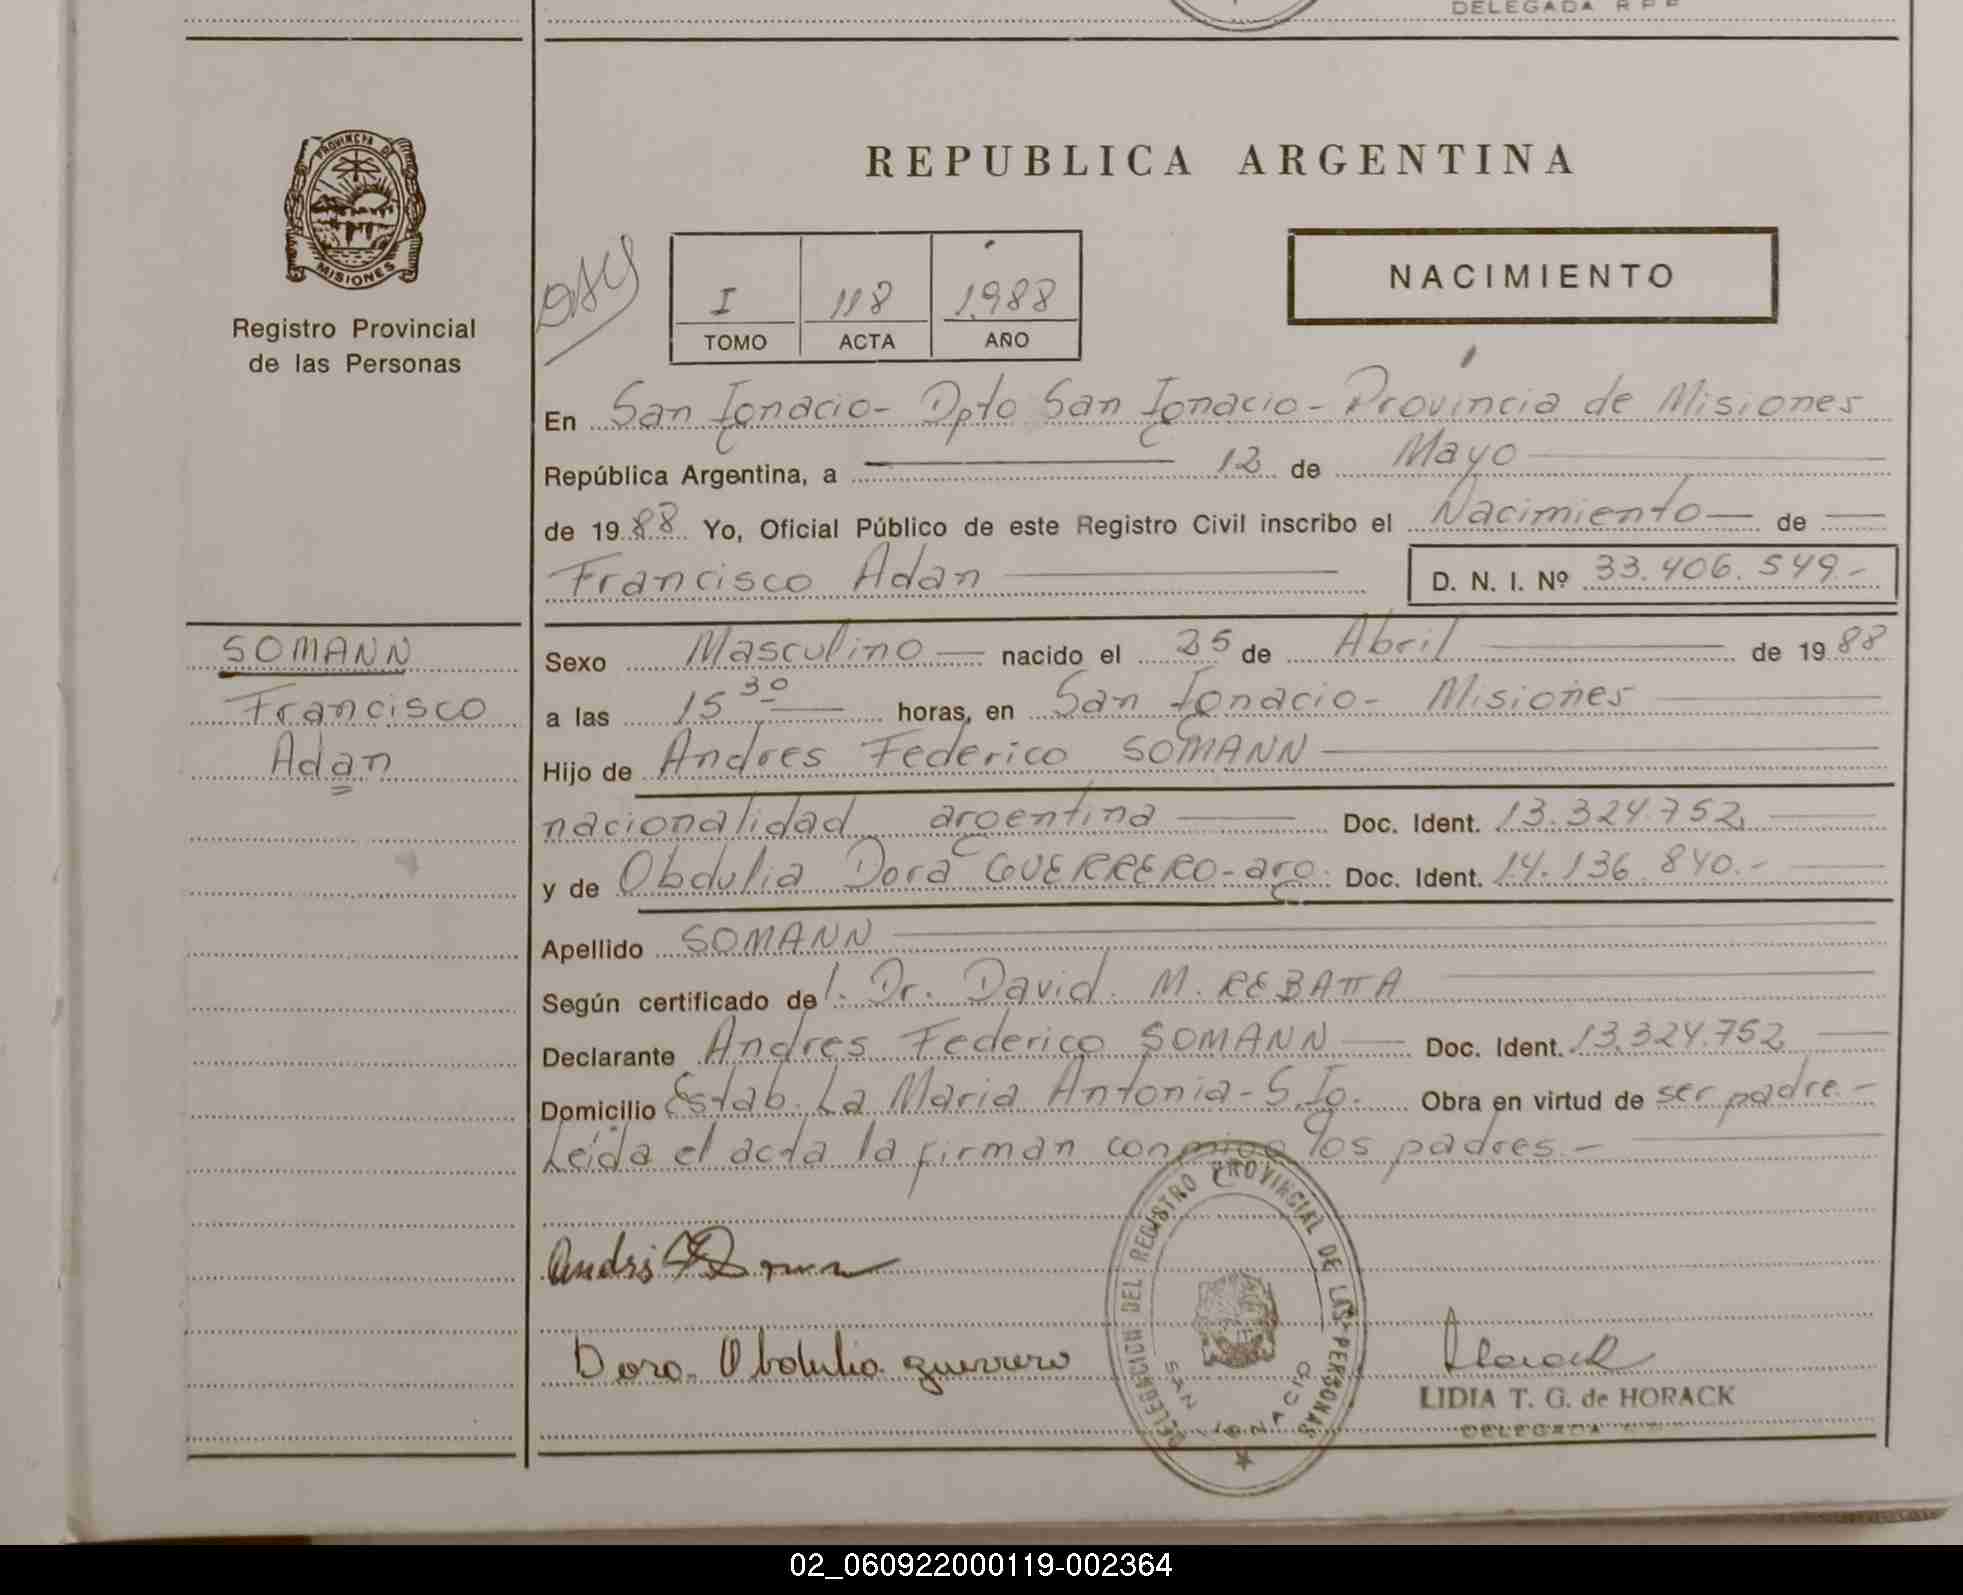 DELEGADA R P P
PROVINCIA DE
MISIONES
Registro Provincial
de las Personas
REPUBLICA ARGENTINA
NACIMIENTO
I 118 1.988
TOMO ACTA AÑO
En San Ignacio - Dpto San Ignacio - Provincia de Misiones
República Argentina, a 12 de Mayo
de 1988 Yo, Oficial Público de este Registro Civil inscribo el Nacimiento de
Francisco Adan D. N. I. Nº 33.406.549.-
SOMANN
Francisco
Adan
Sexo Masculino nacido el 25 de Abril de 1988
a las 15 30 horas, en San Ignacio - Misiones
Hijo de Andres Federico SOMANN
nacionalidad argentina Doc. Ident. 13.324.752
y de Obdulia Dora GUERRERO - arg. Doc. Ident. 14.136.840.-
Apellido SOMANN
Según certificado del. Dr. David. M. REBATTA
Declarante Andres Federico SOMANN Doc. Ident. 13.324.752
Domicilio Estab. La Maria Antonia - S. Ig. Obra en virtud de ser padre.-
Leída el acta la firman conmigo los padres.-
DELEGACION DEL REGISTRO PROVINCIAL DE LAS PERSONAS
SAN IGNACIO
Dora Obdulia guerrero
Horack
LIDIA T. G. de HORACK
DELEGADA
02_060922000119-002364